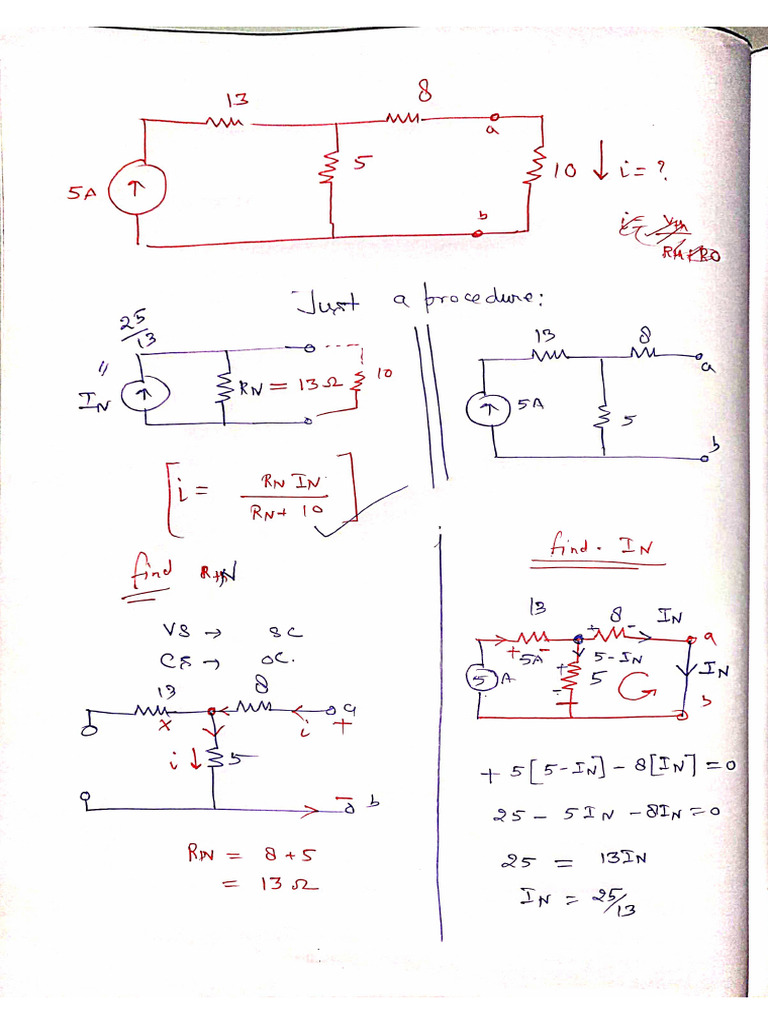 13
8
a
5A
5
10 ↓ i = ?
b
Just a procedure:
25/13
"
IN
RN = 13Ω
10
13
8
a
5A
5
b
[i = RN IN / RN + 10]
find RN
VS → SC
CS → OC.
13
8
a
x
i
+
i ↓
5
-
b
RN = 8 + 5
= 13Ω
find. IN
13
8
IN
a
+ 5A -
+ -
5 - IN
5 A
+
-
5
IN
b
+ 5[5 - IN] - 8[IN] = 0
25 - 5IN - 8IN = 0
25 = 13IN
IN = 25/13